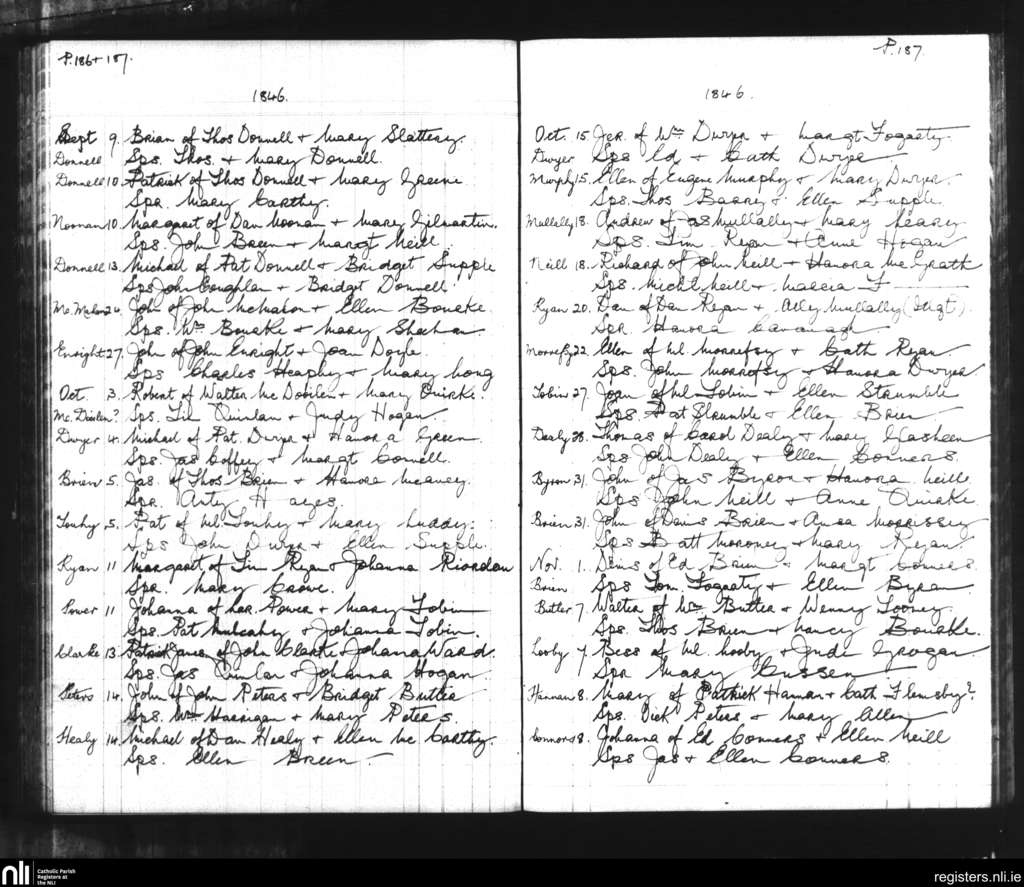 P.186+187.
1846.
Sept 9. Brian of Thos Donnell + Mary Slattery.
Donnell Sps. Thos. + Mary Donnell.
Donnell 10. Patrick of Thos Donnell + Mary Greene
Spr. Mary Carthy.
Noonan 10. Margaret of Dan Noonan + Mary Gilmartin.
Sps. John Breen + Margt Neill
Donnell 13. Michael of Pat Donnell + Bridget Supple
Sps John Coughlan + Bridget Donnell
Mc. Mahon 24. John of John McMahon + Ellen Bourke
Sps. Wm Bourke + Mary Sheehan
Enright 27. John of John Enright + Joan Doyle.
Sps Charles Heaphy + Mary Long
Oct. 3. Robert of Walter Mc + Mary Quirke.
Sps. Tim Quinlan + Judy Hogan
Dwyer 4. Michael of Pat. Dwyer + Hanora Green.
Sps. Jas Coffey + Margt Connell.
Brien 5. Jas. of Thos Brien + Hanora
Spr. Arty Hayes.
Touhy 5. Pat of Ml. Touhy + Mary Luddy.
Sps John Dwyer + Ellen Supple.
Ryan 11 Margaret of Tim Ryan + Johanna Riordan
Spr. Mary Crowe.
Power 11 Johanna of Lar. Power + Mary Tobin
Sps. Pat Mulcahy + Johanna Tobin.
Clarke 13. Patrick James of John Clarke + Johana Ward.
Sps. Jas Quinlan + Johanna Hogan
Peters 14. John of John Peters + Bridget Butler
Sps. Wm Harrigan + Mary Peters.
Healy 14. Michael of Dan Healy + Ellen Mc Carthy.
Sps. Ellen Breen -
P.187.
1846.
Oct. 15 Jer. of Wm Dwyer + Margt Fogarty.
Dwyer Sps Ed + Cath Dwyer
Murphy 15. Ellen of Eugene Murphy + Mary Dwyer.
Sps. Thos Barry + Ellen Supple
Mullally 18. Andrew of Jas Mullally + Mary Leary
Sps. Tim Ryan + Anne Hogan
Neill 18. Richard of John Neill + Hanora Mc Grath
Sps. Michl Neill + Maria F
Ryan 20. Dan of Dan Ryan + Alley Mullally
Spr. Hanora Cavanagh
22. Ellen of Ml + Cath Ryan.
Sps. John + Hanora Dwyer
Tobin 27. Joan of Ml Tobin + Ellen Strumble
Sps. Pat Strumble + Ellen Brien
Dealy 28. Thomas of Carol Dealy + Mary Gasheen
Sps. John Dealy + Ellen Connors.
Byron 31. John of Jas Byron + Hanora Neill
Sps John Neill + Anne Quirke
Brien 31. John of Denis Brien + Anna Morrissey
Sps Batt Moroney + Mary Ryan.
Nov. 1. Denis of Ed Brien + Margt Connors.
Brien Sps Tom. Fogarty + Ellen Byran
Butler 7. Walter of Wm Butler + Wenny Tooney
Sps. Thos Brien + Nancy Bourke.
Looby 7. Bess of Ml. Looby + Jude Grogan
Spr Mary Cussen
Hannan 8. Mary of Patrick Hanan + Cath Flemsby?
Sps. Dick Peters + Mary Allen
Connors 8. Johanna of Ed Connors + Ellen Neill
Sps Jas + Ellen Connors.
nli
Catholic Parish
Registers at
the NLI
registers.nli.ie